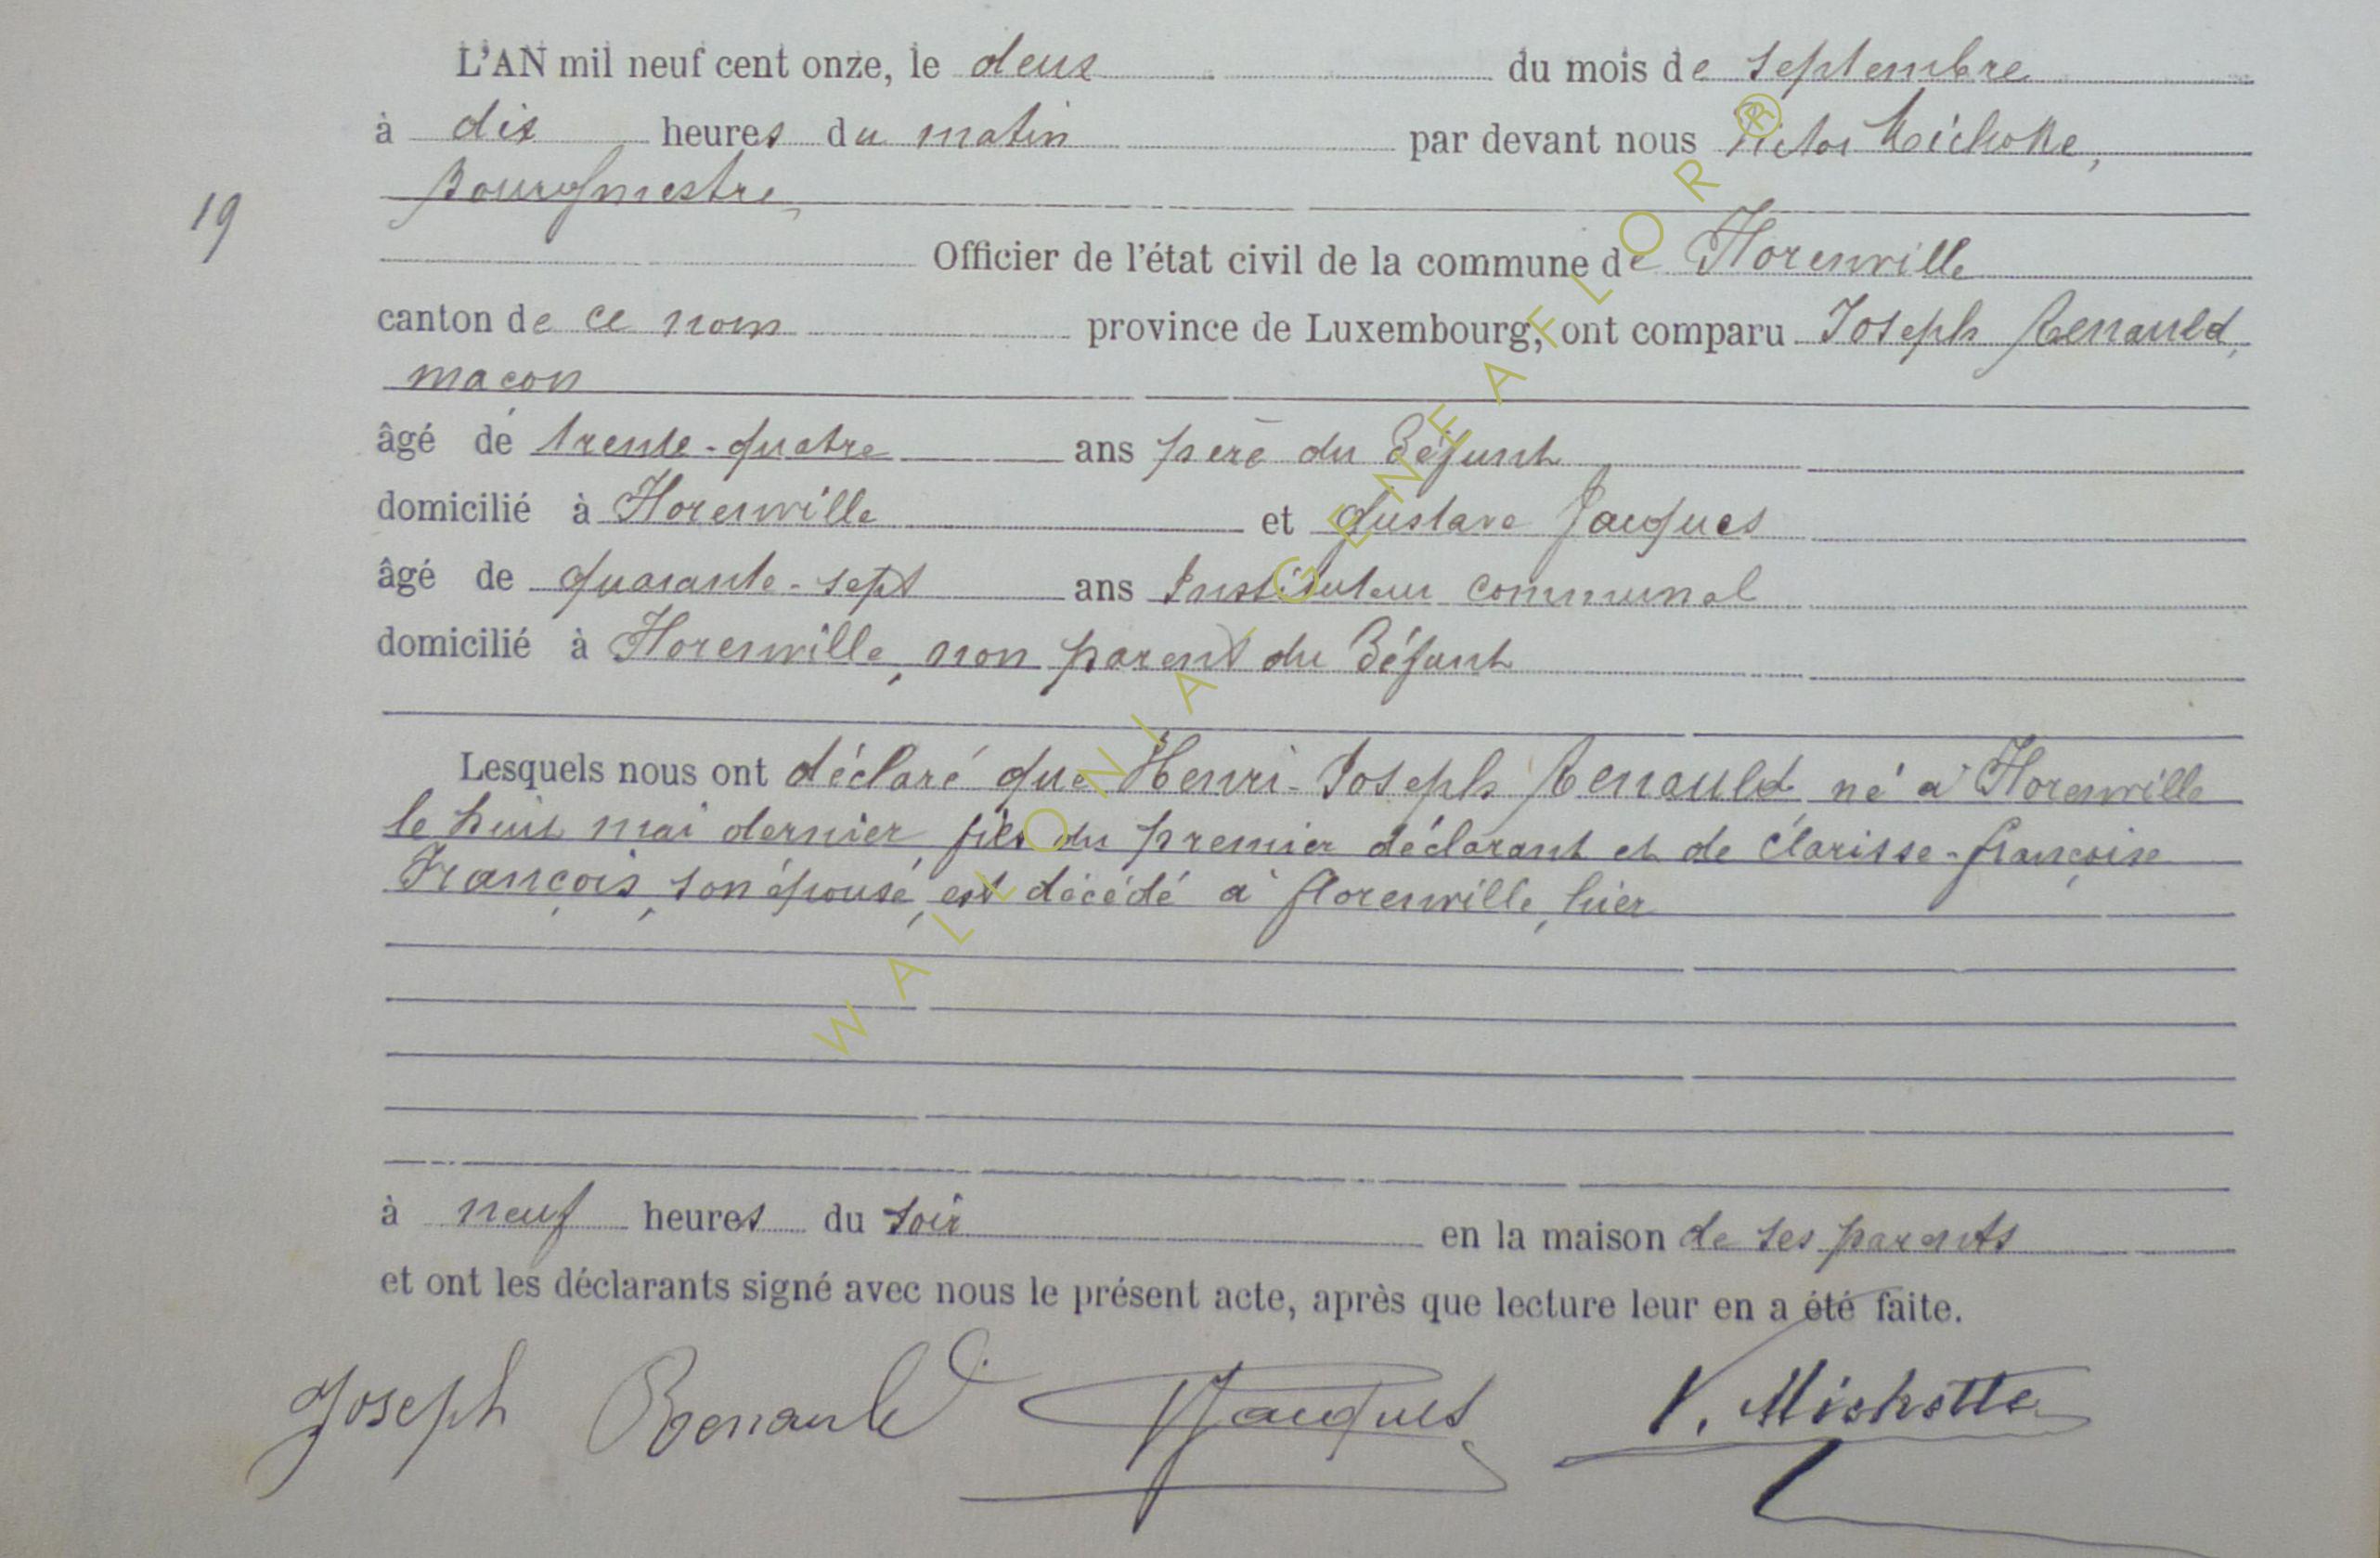 L'AN mil neuf cent onze, le deux du mois de septembre
à dix heures du matin par devant nous Victor Michotte,
Bourgmestre,
19
Officier de l'état civil de la commune de Florenville
canton de ce nom province de Luxembourg, ont comparu Joseph Renauld,
maçon
âgé de trente-quatre ans père du défunt
domicilié à Florenville et Gustave Jacques
âgé de quarante-sept ans Instituteur communal
domicilié à Florenville, non parent du défunt
Lesquels nous ont déclaré que Henri-Joseph Renauld, né à Florenville
le huit mai dernier, fils du premier déclarant et de Clarisse-Françoise
François, son épouse, est décédé à Florenville, hier
à neuf heures du soir en la maison de ses parents
et ont les déclarants signé avec nous le présent acte, après que lecture leur en a été faite.
Joseph Renauld Jacques V. Michotte
WALLONIA - GENEAFLOR ®